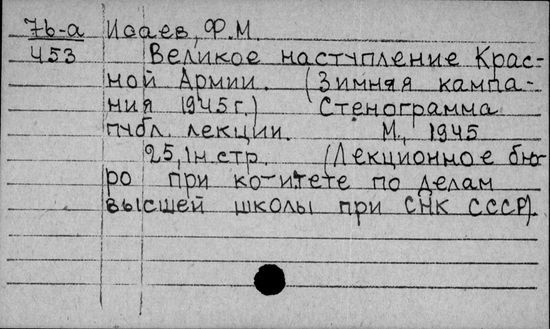 7б-а Исаев, Ф.М.
И53 Великое наступление Крас-
ной Армии. (Зимняя кампа-
ния 1945г.) Стенограмма
публ. лекции. М., 1945
25,1н.стр. (Лекционное бю-
ро при ко-итете по делам
высшей школы при СНК СССР).